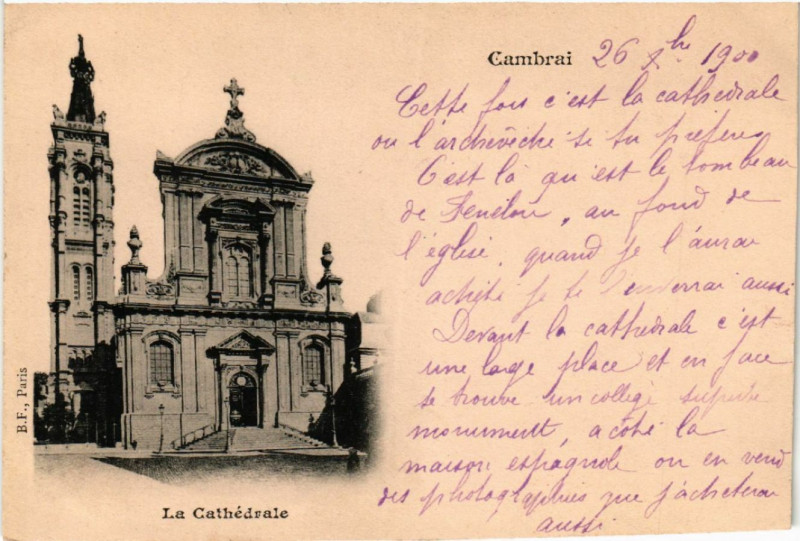 Cambrai 26 Xbre 1900
Cette fois c'est la cathedrale
ou l'archevêché si tu préfères
C'est là qu'est le tombeau
de Fénélon, au fond de
l'église, quand je l'aurai
acheté je te l'enverrai aussi
Devant la cathedrale c'est
une large place et en face
se trouve un collège superbe
monument, a côté la
maison espagnole ou en vend
des photographies que j'acheterai
aussi
B.F., Paris
La Cathédrale